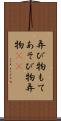 弄び物もて
あそび物弄
物